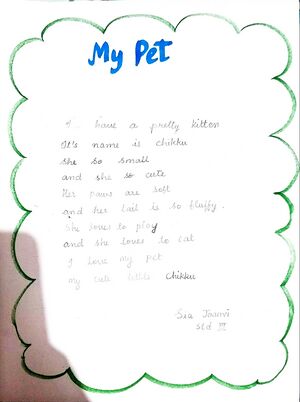 My Pet
I have a pretty kitten
It's name is chikku
She so small
and she so cute
Her paws are soft
and her tail is so bluffy.
She loves to play
and she loves to eat
I love my pet
my cute little chikku
Sia
std VI